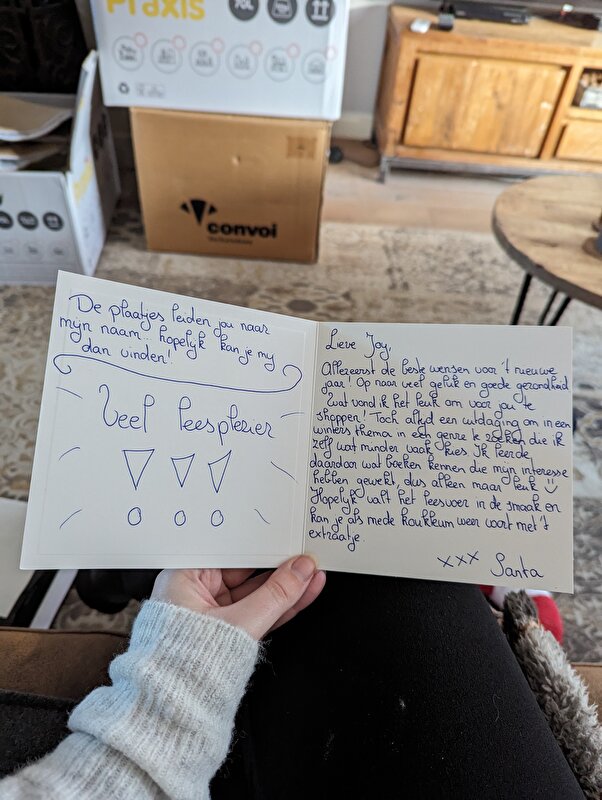 Praxis
convoi
De plaatjes leiden jou naar
mijn naam.. hopelijk kan je mij
dan vinden!
Veel leesplezier
!!!
Lieve Joy,
Allereerst de beste wensen voor 't nieuwe
jaar! Op naar veel geluk en goede gezondheid
Wat vond ik het leuk om voor jou te
shoppen! Toch altijd een uitdaging om in een
winters thema in een genre te zoeken die ik
zelf wat minder vaak kies. Ik leerde
daardoor wat boeken kennen die mijn interesse
hebben gewekt, dus alleen maar leuk
Hopelijk valt het leesvoer in de smaak en
kan je als mede koukleum weer voort met 't
extraatje
xxx Santa